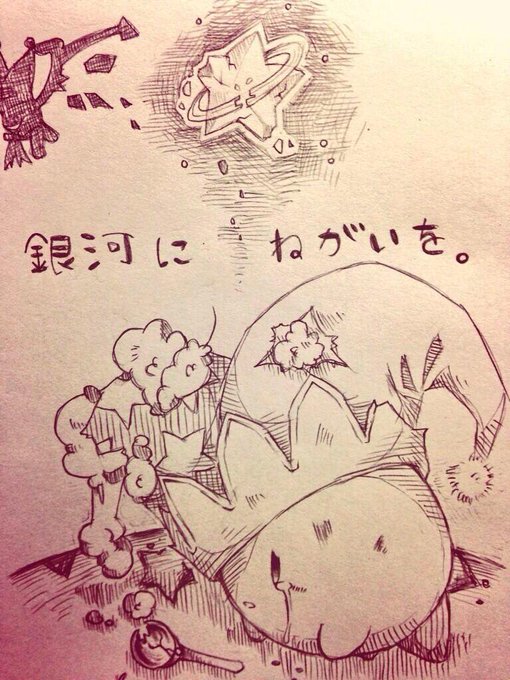 銀河に ねがいを。